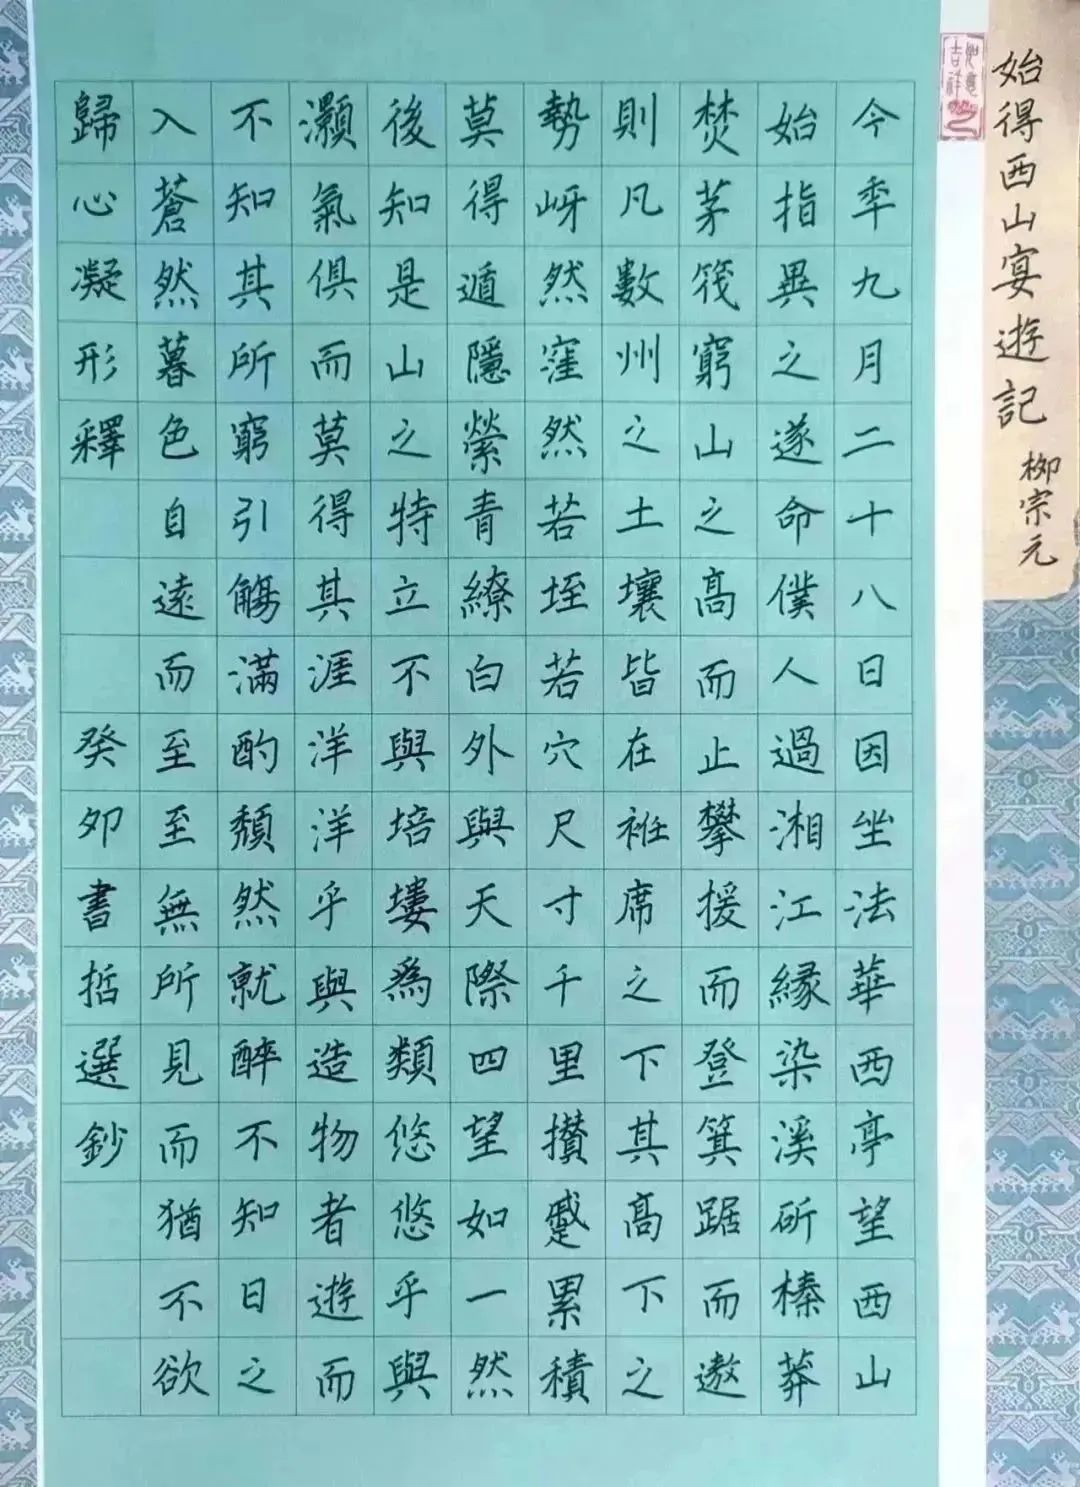 始得西山宴遊記
柳宗元
如意吉祥
今秊九月二十八日因坐法華西亭望西山
始指異之遂命僕人過湘江縁染溪斫榛莽
焚茅筏窮山之高而止攀援而登箕踞而遨
則凡數州之土壤皆在袵席之下其高下之
勢岈然窪然若垤若穴尺寸千里攢蹙累積
莫得遁隱縈青繚白外與天際四望如一然
後知是山之特立不與培塿為類悠悠乎與
灝氣俱而莫得其涯洋洋乎與造物者遊而
不知其所窮引觴滿酌頹然就醉不知日之
入蒼然暮色自遠而至至無所見而猶不欲
歸心凝形釋
癸卯書哲選鈔